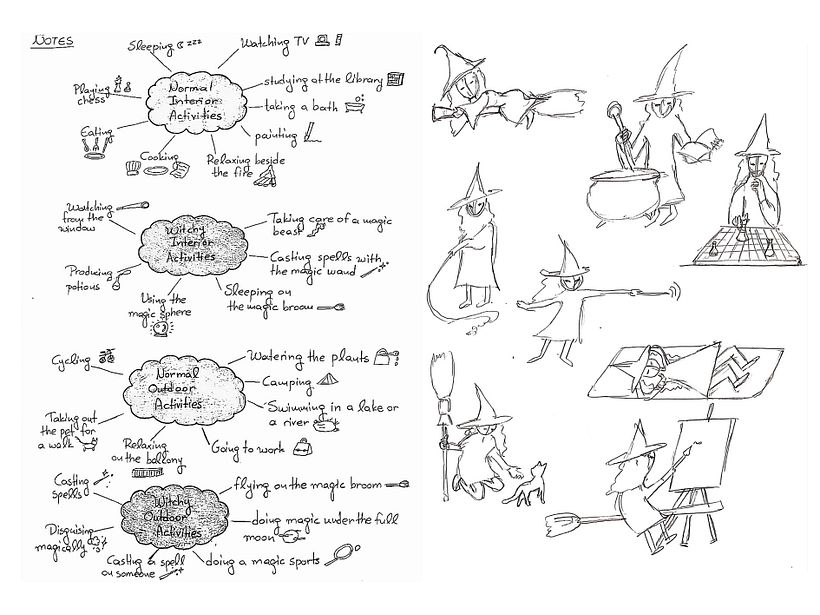 NOTES
Sleeping zzz
Watching TV
Playing
chess
Normal
Interior
Activities
studying at the library
taking a bath
painting
Eating
Cooking
Relaxing beside
the fire
Watching
from the
window
Witchy
Interior
Activities
Taking care of a magic
beast
Casting spells with
the magic wand
Producing
potions
Using the
magic sphere
Sleeping on
the magic broom
Cycling
Normal
Outdoor
Activities
Watering the plants
Camping
Swimming in a lake or
a river
Taking out
the pet for
a walk
Relaxing
on the balcony
Going to work
Casting
spells
Witchy
Outdoor
Activities
flying on the magic broom
doing magic under the full
moon
Disguising
magically
Casting a spell
on someone
doing a magic sports